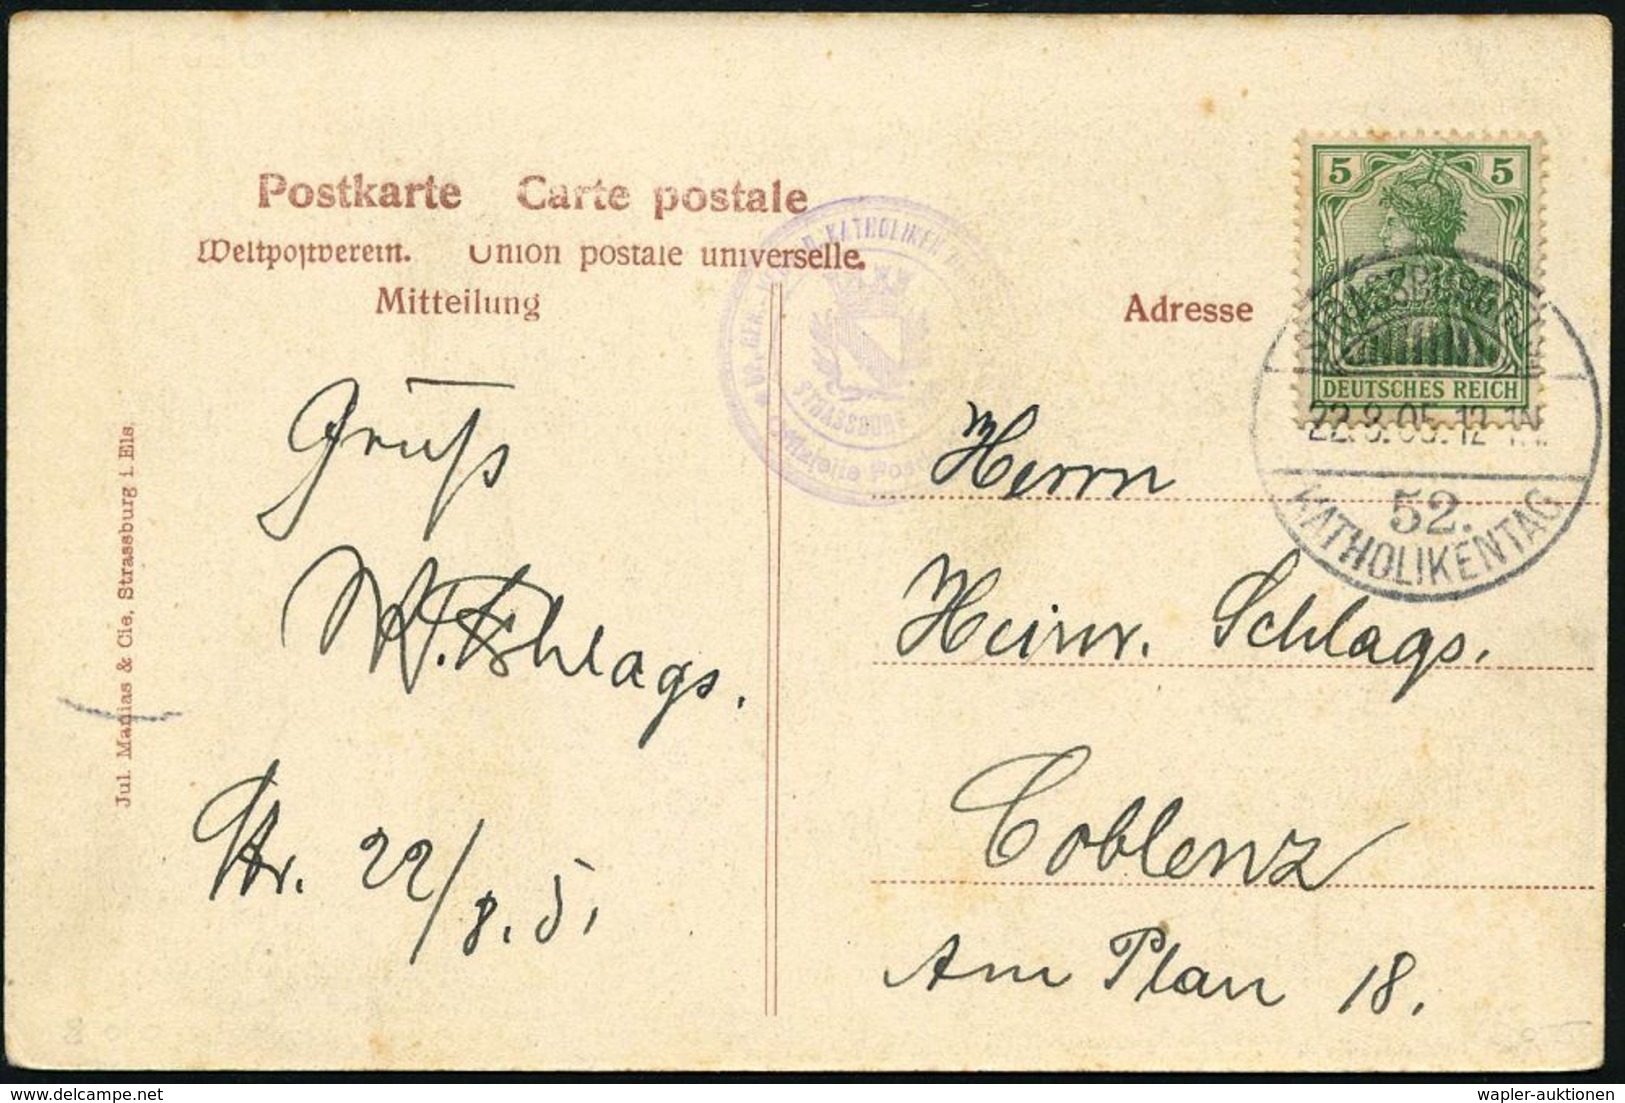 Postkarte Carte postale
Weltpostverein. Union postale universelle.
Mitteilung
Adresse
5 5
DEUTSCHES REICH
STRASSBURG
22.8.05.12-1N.
52.
KATHOLIKENTAG
KATHOLIKEN
STRASSBURG
Offizielle
Jul. Manias & Cie, Strassburg i. Els.
Gruß
Schlags.
Str. 22/8.5.
Herrn
Heinr. Schlags.
Coblenz
Am Plan 18.
wapler-auktionen